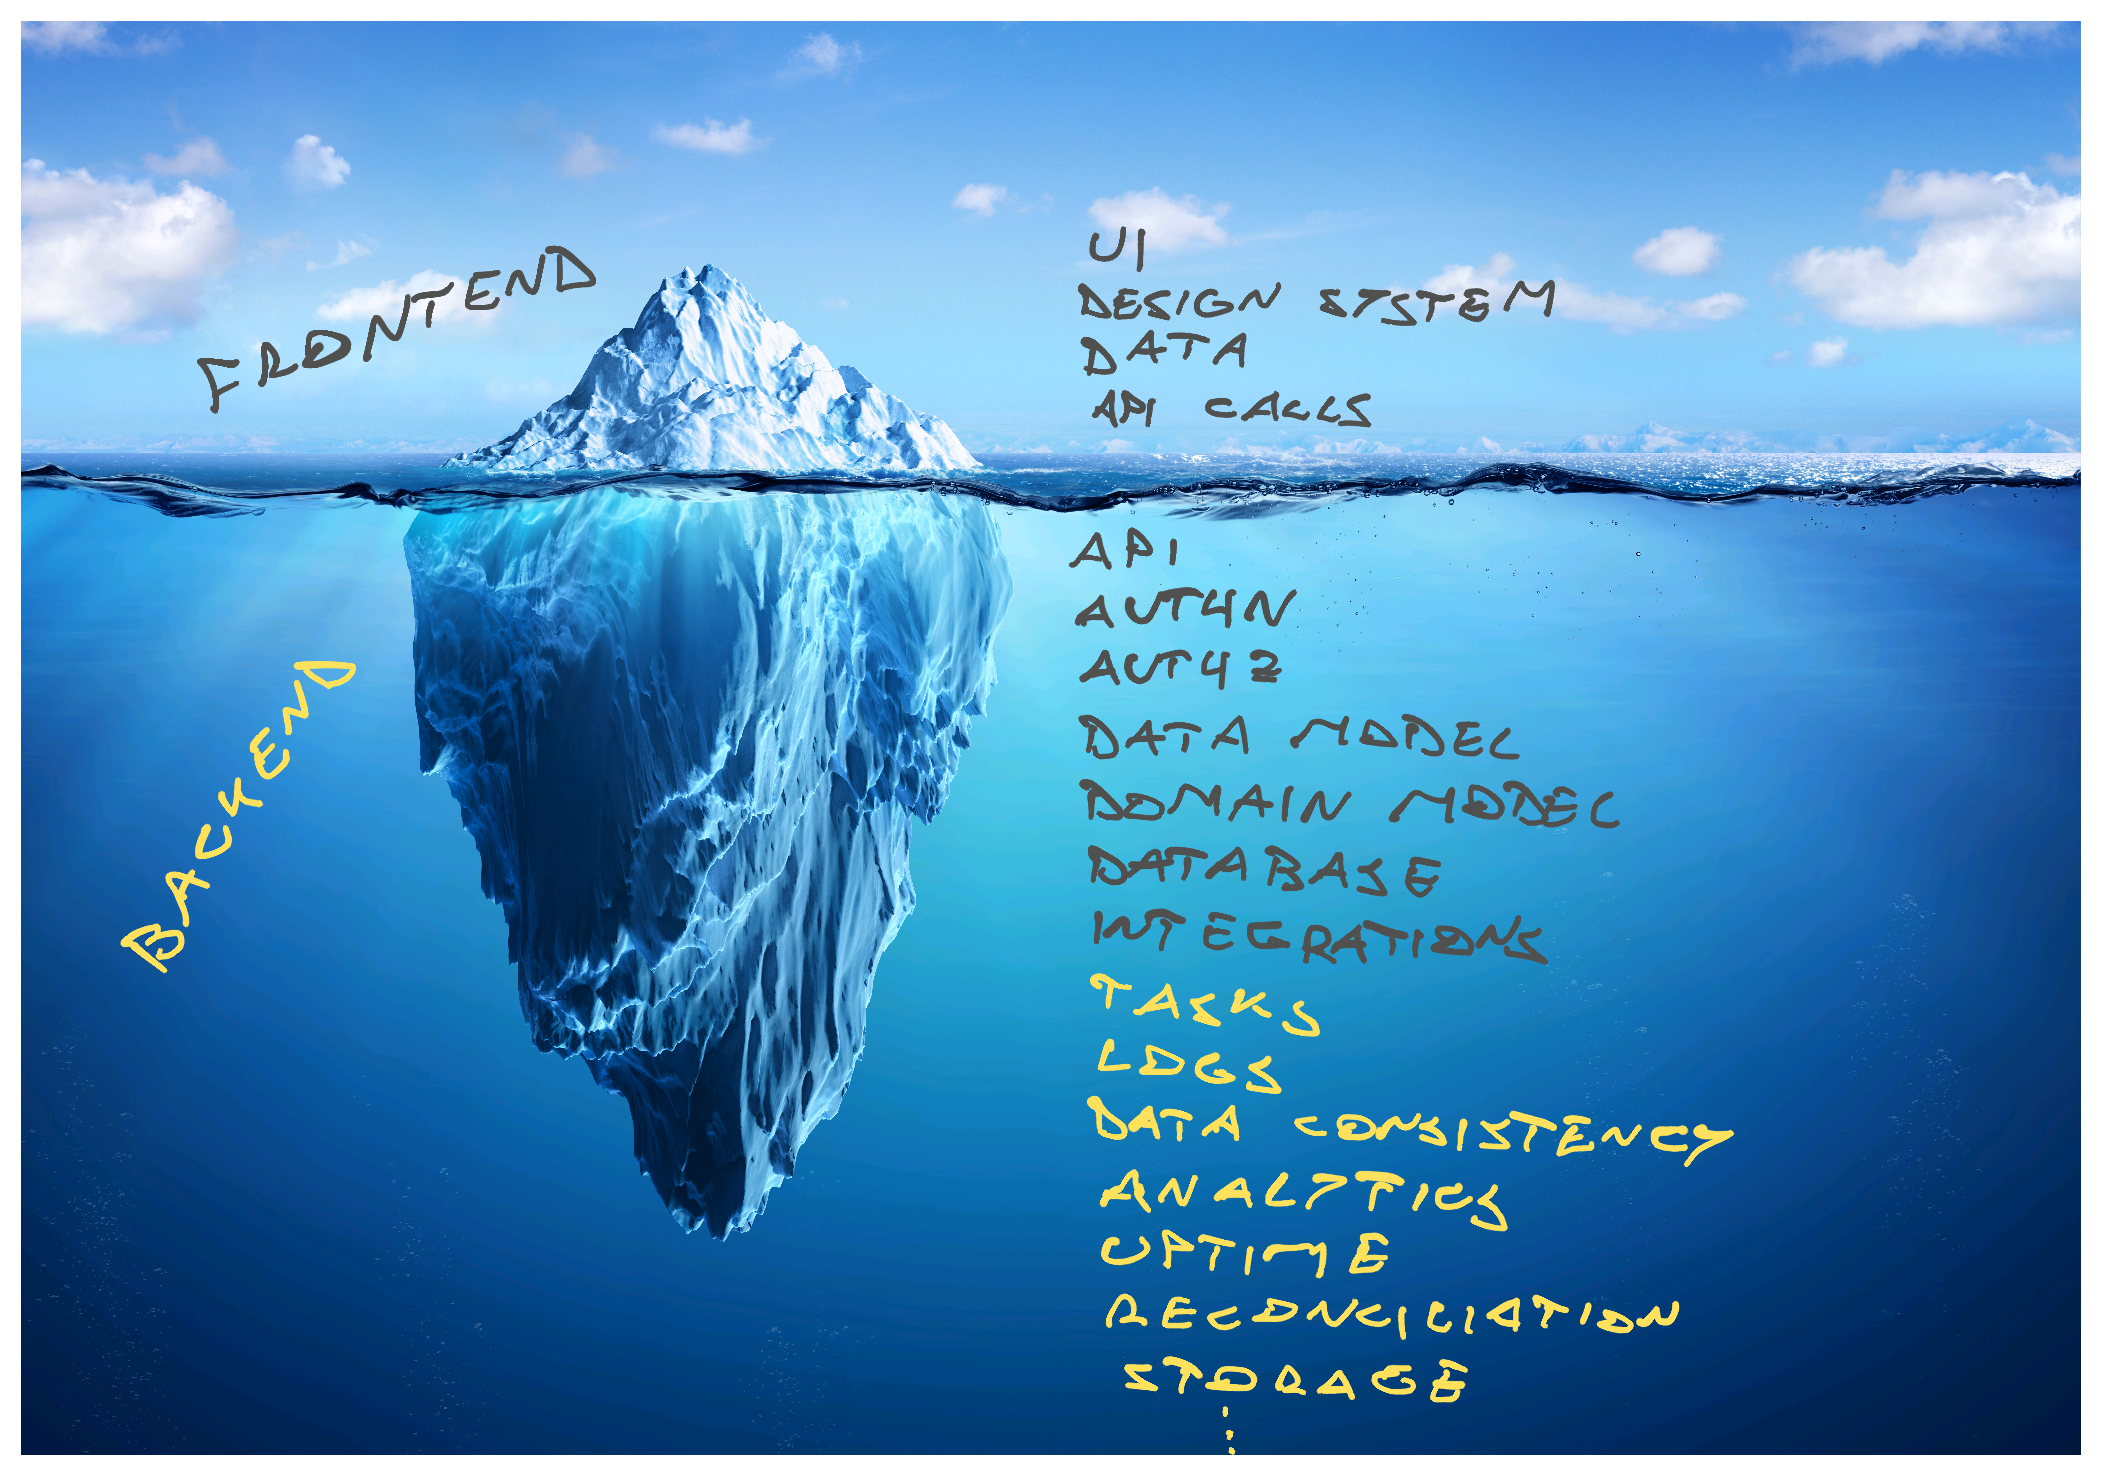 FRONTEND
UI
DESIGN SYSTEM
DATA
API CALLS
BACKEND
API
AUTHN
AUTHZ
DATA MODEL
DOMAIN MODEL
DATABASE
INTEGRATIONS
TASKS
LOGS
DATA CONSISTENCY
ANALYTICS
UPTIME
RECONCILIATION
STORAGE
⋮